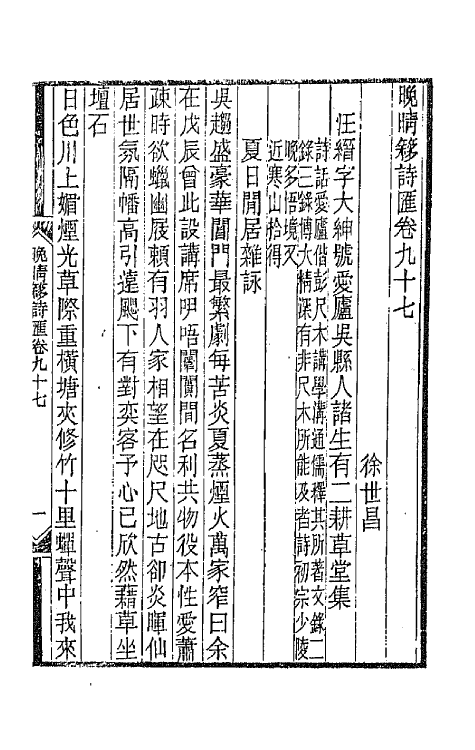 晚晴簃詩匯卷九十七
徐世昌
汪縉字大紳號愛廬吳縣人諸生有二耕草堂集
詩話愛廬偕彭尺木講學溝通儒釋其所著文錄二
錄三錄博大精深有非尺木所能及者詩初宗少陵
晚多悟境又
近寒山拾得
夏日閒居雜詠
吳趨盛豪華閶門最繁劇每苦炎夏蒸煙火萬家窄曰余
在戊辰曾此設講席吚唔闤闠間名利共物役本性愛蕭
疎時欲蠟幽屐賴有羽人家相望在咫尺地古卻炎暉仙
居世氛隔幡高引遠颸下有對奕客予心已欣然藉草坐
壇石
日色川上媚煙光草際重橫塘夾修竹十里蟬聲中我來
晚晴簃詩匯卷九十七
一